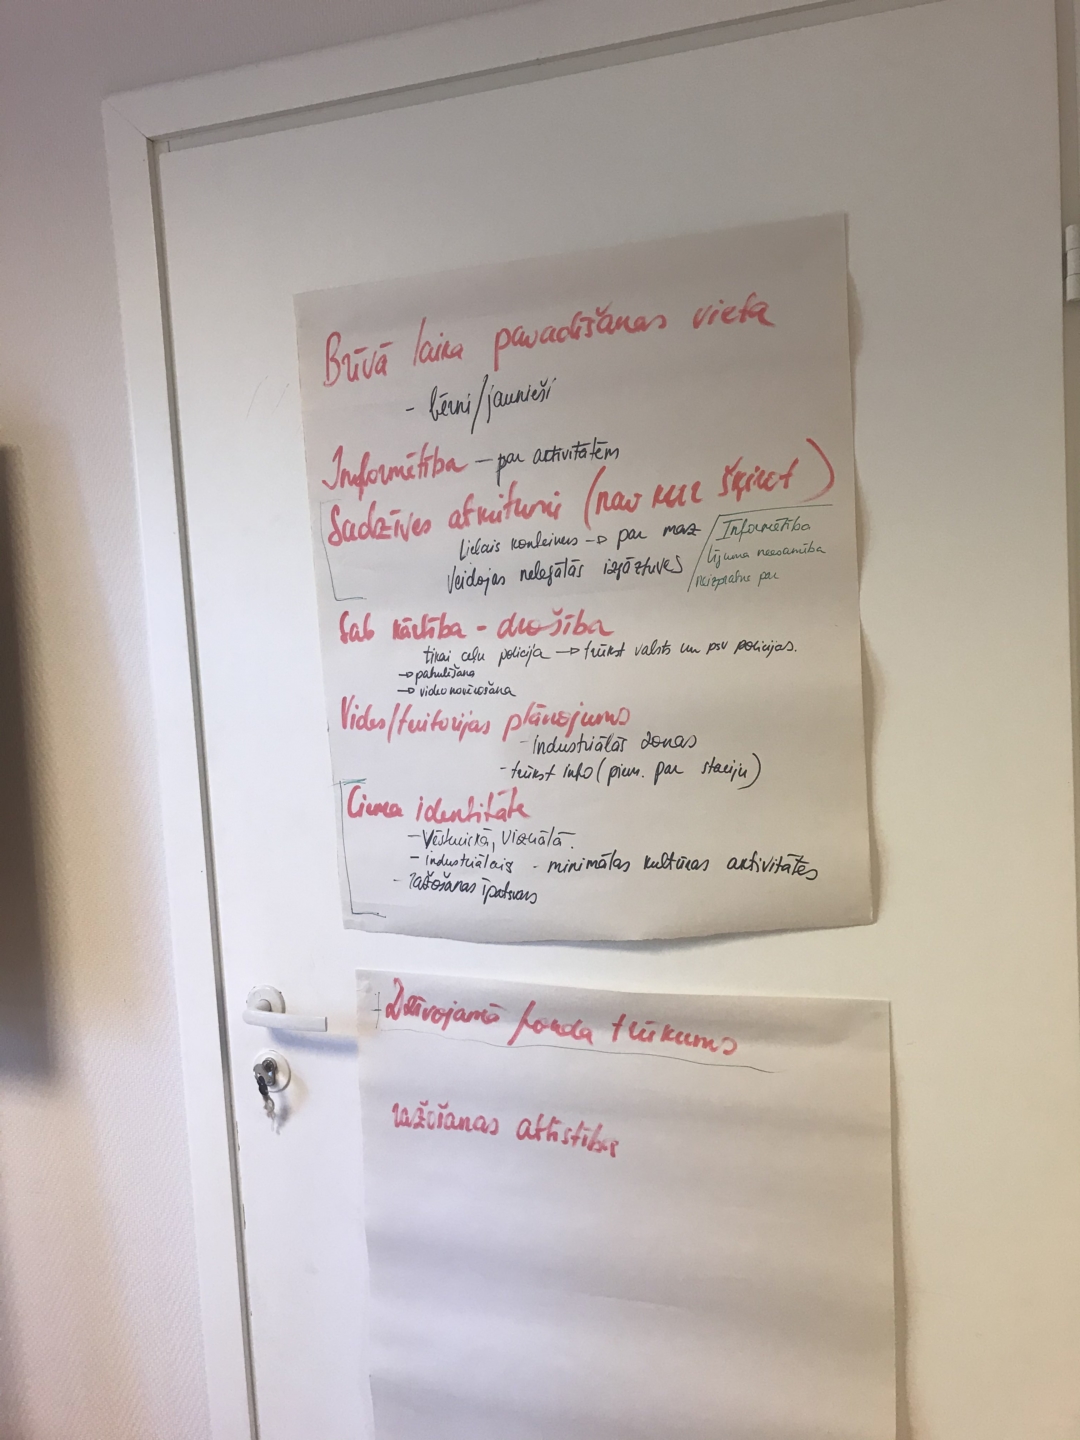 Brīvā laika pavadīšanas vieta
- bērni/jaunieši
Informētība - par aktivitātēm
Sadzīves atkritumi (nav kur šķirot)
Lielais konteiners → par maz
Veidojas nelegālās izgāztuves
Informētība
līguma neesamība
neizpratne par
Sab kārtība - drošība
tikai ceļu policija → trūkst valsts un psv policijas.
→ patrulēšana
→ videonovērošana
Vides/teritorijas plānojums
- Industriālās zonas
- trūkst info (piem. par staciju)
Ciema identitāte
- Vēsturiskā, Vizuālā.
- industriālais - minimālas kultūras aktivitātes
- ražošanas īpatsvars
Dzīvojamā fonda trūkums
ražošanas attīstība